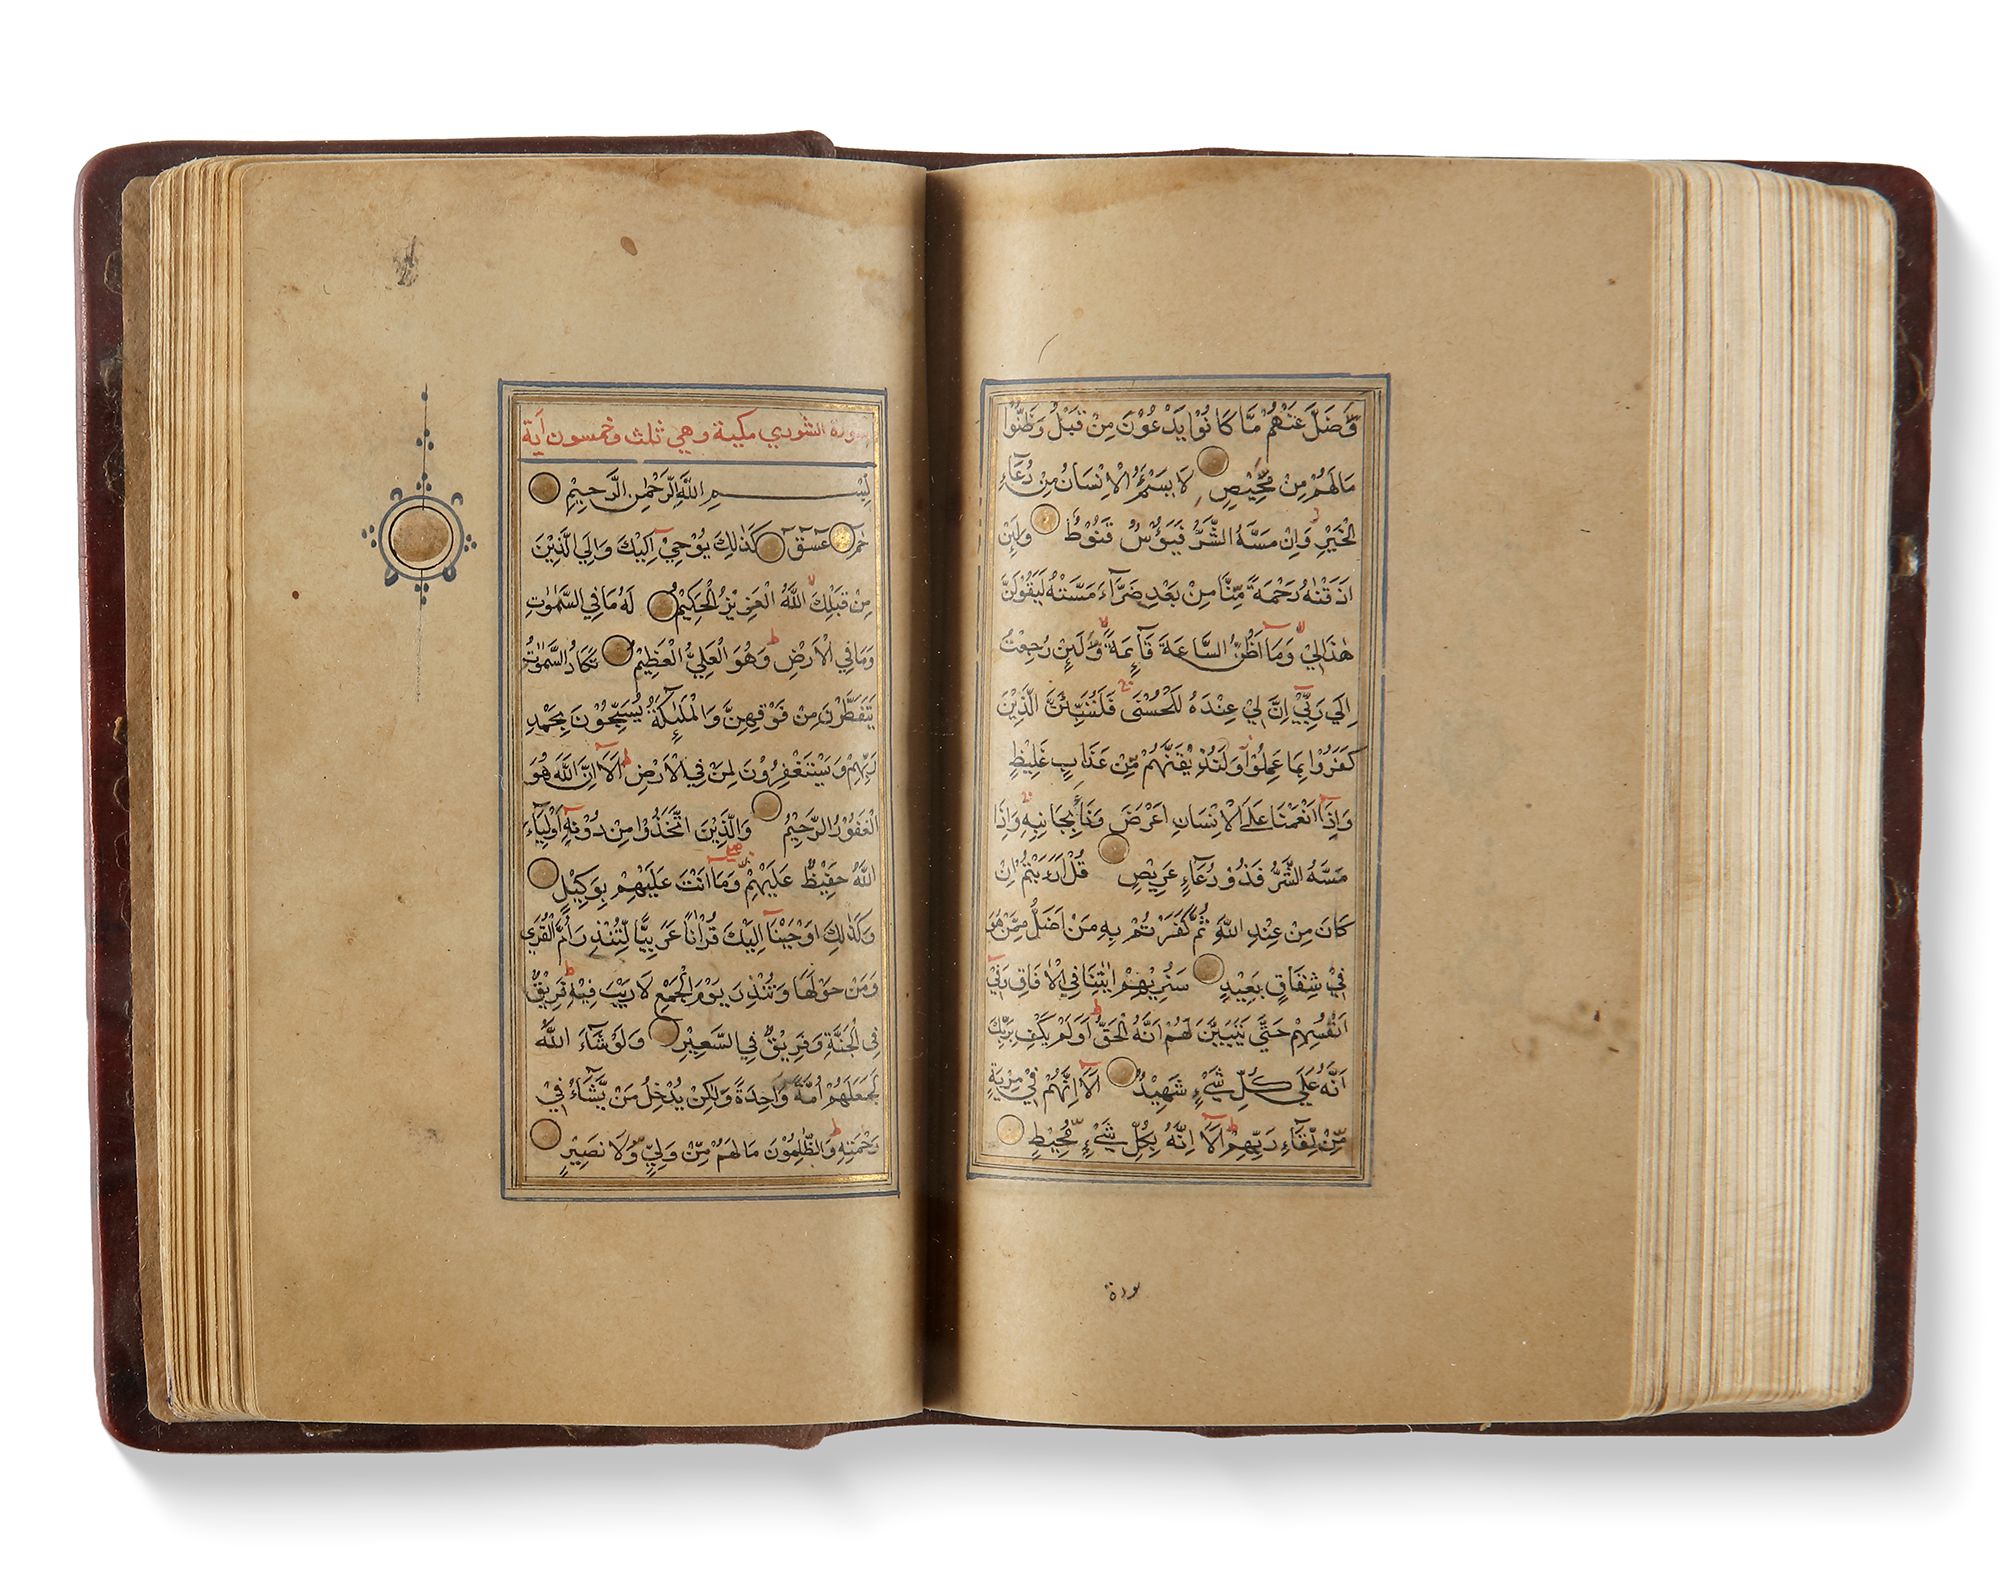 وَضَلَّ عَنْهُمْ مَّا كَانُوْا يَدْعُوْنَ مِنْ قَبْلُ وَظَنُّوْا
مَالَهُمْ مِنْ مَّحِيْصٍ لَا يَسْئَمُ الْاِنْسَانُ مِنْ دُعَآءِ
الْخَيْرِ وَاِنْ مَسَّهُ الشَّرُّ فَيَؤُسٌ قَنُوْطٌ وَلَئِنْ
اَذَقْنٰهُ رَحْمَةً مِّنَّا مِنْ بَعْدِ ضَرَّآءَ مَسَّتْهُ لَيَقُوْلَنَّ
هٰذَا لِيْ وَمَآ اَظُنُّ السَّاعَةَ قَآئِمَةً وَّلَئِنْ رُجِعْتُ
اِلٰي رَبِّيْٓ اِنَّ لِيْ عِنْدَهُ لَلْحُسْنٰى فَلَنُنَبِّئَنَّ الَّذِيْنَ
كَفَرُوْا بِمَا عَمِلُوْا وَلَنُذِيْقَنَّهُمْ مِّنْ عَذَابٍ غَلِيْظٍ
وَاِذَآ اَنْعَمْنَا عَلَى الْاِنْسَانِ اَعْرَضَ وَنَاٰ بِجَانِبِهِ وَاِذَا
مَسَّهُ الشَّرُّ فَذُوْ دُعَآءٍ عَرِيْضٍ قُلْ اَرَءَيْتُمْ اِنْ
كَانَ مِنْ عِنْدِ اللّٰهِ ثُمَّ كَفَرْتُمْ بِهِ مَنْ اَضَلُّ مِمَّنْ هُوَ
فِيْ شِقَاقٍ بَعِيْدٍ سَنُرِيْهِمْ اٰيٰتِنَا فِي الْاٰفَاقِ وَفِيْٓ
اَنْفُسِهِمْ حَتّٰي يَتَبَيَّنَ لَهُمْ اَنَّهُ الْحَقُّ اَوَلَمْ يَكْفِ بِرَبِّكَ
اَنَّهُ عَلٰي كُلِّ شَيْءٍ شَهِيْدٌ اَلَآ اِنَّهُمْ فِيْ مِرْيَةٍ
مِّنْ لِّقَآءِ رَبِّهِمْ اَلَآ اِنَّهُ بِكُلِّ شَيْءٍ مُّحِيْطٌ
سورة
سورة الشوري مكية وهي ثلث وخمسون آية
بِسْمِ اللّٰهِ الرَّحْمٰنِ الرَّحِيْمِ
حٰمٓ عٓسٓقٓ كَذٰلِكَ يُوْحِيْٓ اِلَيْكَ وَاِلَي الَّذِيْنَ
مِنْ قَبْلِكَ اللّٰهُ الْعَزِيْزُ الْحَكِيْمُ لَهُ مَا فِي السَّمٰوٰتِ
وَمَا فِي الْاَرْضِ وَهُوَ الْعَلِيُّ الْعَظِيْمُ تَكَادُ السَّمٰوٰتُ
يَتَفَطَّرْنَ مِنْ فَوْقِهِنَّ وَالْمَلٰٓئِكَةُ يُسَبِّحُوْنَ بِحَمْدِ
رَبِّهِمْ وَيَسْتَغْفِرُوْنَ لِمَنْ فِي الْاَرْضِ اَلَآ اِنَّ اللّٰهَ هُوَ
الْغَفُوْرُ الرَّحِيْمُ وَالَّذِيْنَ اتَّخَذُوْا مِنْ دُوْنِهِ اَوْلِيَآءَ
اللّٰهُ حَفِيْظٌ عَلَيْهِمْ وَمَآ اَنْتَ عَلَيْهِمْ بِوَكِيْلٍ
وَكَذٰلِكَ اَوْحَيْنَآ اِلَيْكَ قُرْاٰنًا عَرَبِيًّا لِّتُنْذِرَ اُمَّ الْقُرٰي
وَمَنْ حَوْلَهَا وَتُنْذِرَ يَوْمَ الْجَمْعِ لَا رَيْبَ فِيْهِ فَرِيْقٌ
فِي الْجَنَّةِ وَفَرِيْقٌ فِي السَّعِيْرِ وَلَوْ شَآءَ اللّٰهُ
لَجَعَلَهُمْ اُمَّةً وَّاحِدَةً وَّلٰكِنْ يُدْخِلُ مَنْ يَّشَآءُ فِيْ
رَحْمَتِهِ وَالظّٰلِمُوْنَ مَا لَهُمْ مِّنْ وَلِيٍّ وَّلَا نَصِيْرٍ